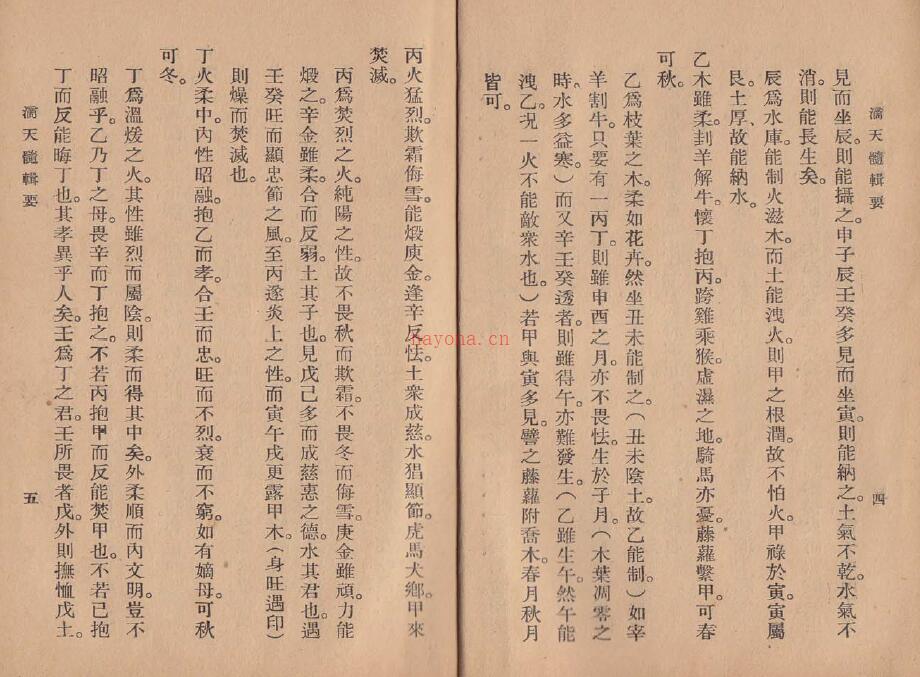 滴天髓輯要
四
見而坐辰。則能攝之。申子辰壬癸多見而坐寅。則能納之。土氣不乾。水氣不
消。則能長生矣。
辰爲水庫。能制火滋木。而土能洩火。則甲之根潤。故不怕火。甲祿於寅。寅屬
艮。土厚、故能納水。
乙木雖柔。刲羊解牛。懷丁抱丙。跨雞乘猴。虛濕之地。騎馬亦憂。藤蘿繫甲。可春
可秋。
乙爲枝葉之木。柔如花卉。然坐丑未能制之。（丑未陰土。故乙能制。）如宰
羊割牛。只要有一丙丁。則雖申酉之月。亦不畏怯。生於子月。（木葉凋零之
時。水多益寒。）而又辛壬癸透者。則雖得午。亦難發生。（乙雖生午。然午能
洩乙。况一火不能敵衆水也。）若甲與寅多見。譬之藤蘿附喬木。春月秋月
皆可。
丙火猛烈。欺霜侮雪。能煅庚金。逢辛反怯。土衆成慈。水猖顯節。虎馬犬鄉。甲來
焚滅。
丙爲焚烈之火。純陽之性。故不畏秋而欺霜。不畏冬而侮雪。庚金雖頑。力能
煅之。辛金雖柔。合而反弱。土其子也。見戊己多而成慈惠之德。水其君也。遇
壬癸旺而顯忠節之風。至丙遂炎上之性。而寅午戌更露甲木。（身旺遇印）
則燥而焚滅也。
丁火柔中。內性昭融。抱乙而孝。合壬而忠。旺而不烈。衰而不窮。如有嫡母。可秋
可冬。
丁爲溫煖之火。其性雖烈而屬陰。則柔而得其中矣。外柔順而內文明。豈不
昭融乎。乙乃丁之母。畏辛而丁抱之。不若丙抱甲而反能焚甲也。不若己抱
丁而反能晦丁也。其孝異乎人矣。壬爲丁之君。壬所畏者戊。外則撫恤戊土。
滴天髓輯要
五
nayona.cn